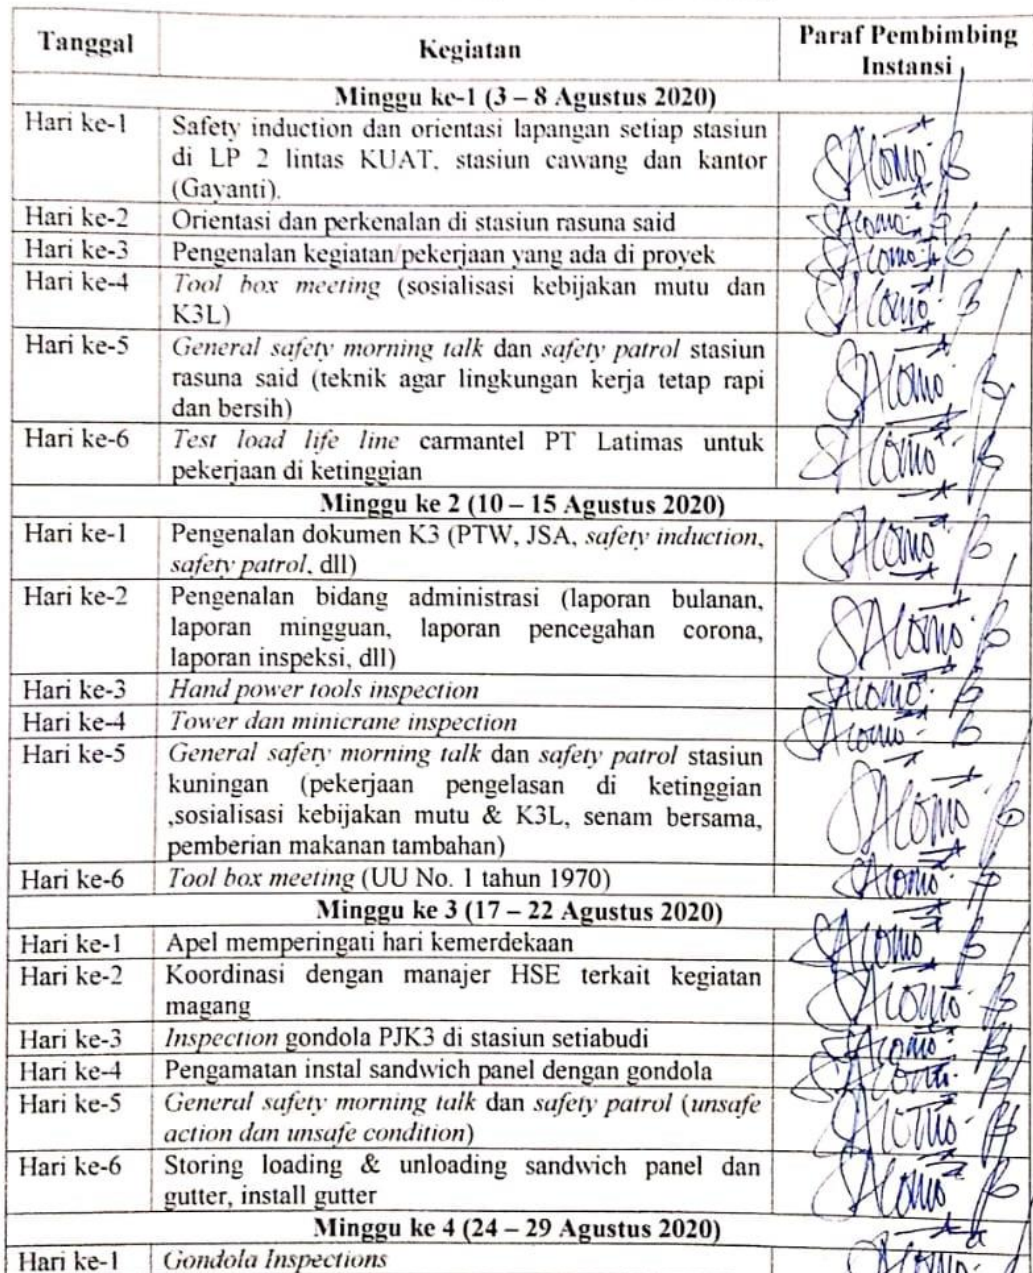 Tanggal Kegiatan Paraf Pembimbing
Instansi
Minggu ke-1 (3 – 8 Agustus 2020)
Hari ke-1 Safety induction dan orientasi lapangan setiap stasiun
di LP 2 lintas KUAT, stasiun cawang dan kantor
(Gayanti).
Hari ke-2 Orientasi dan perkenalan di stasiun rasuna said
Hari ke-3 Pengenalan kegiatan/pekerjaan yang ada di proyek
Hari ke-4 Tool box meeting (sosialisasi kebijakan mutu dan
K3L)
Hari ke-5 General safety morning talk dan safety patrol stasiun
rasuna said (teknik agar lingkungan kerja tetap rapi
dan bersih)
Hari ke-6 Test load life line carmantel PT Latimas untuk
pekerjaan di ketinggian
Minggu ke 2 (10 – 15 Agustus 2020)
Hari ke-1 Pengenalan dokumen K3 (PTW, JSA, safety induction,
safety patrol, dll)
Hari ke-2 Pengenalan bidang administrasi (laporan bulanan,
laporan mingguan, laporan pencegahan corona,
laporan inspeksi, dll)
Hari ke-3 Hand power tools inspection
Hari ke-4 Tower dan minicrane inspection
Hari ke-5 General safety morning talk dan safety patrol stasiun
kuningan (pekerjaan pengelasan di ketinggian
,sosialisasi kebijakan mutu & K3L, senam bersama,
pemberian makanan tambahan)
Hari ke-6 Tool box meeting (UU No. 1 tahun 1970)
Minggu ke 3 (17 – 22 Agustus 2020)
Hari ke-1 Apel memperingati hari kemerdekaan
Hari ke-2 Koordinasi dengan manajer HSE terkait kegiatan
magang
Hari ke-3 Inspection gondola PJK3 di stasiun setiabudi
Hari ke-4 Pengamatan instal sandwich panel dengan gondola
Hari ke-5 General safety morning talk dan safety patrol (unsafe
action dan unsafe condition)
Hari ke-6 Storing loading & unloading sandwich panel dan
gutter, install gutter
Minggu ke 4 (24 – 29 Agustus 2020)
Hari ke-1 Gondola Inspections